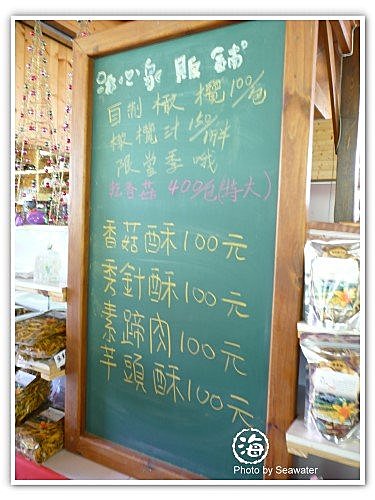 冰心泉販舖
自制橄欖100/包
橄欖汁150/1杯
限當季哦
乾香菇 400包(特大)
香菇酥100元
秀針酥100元
素蹄肉100元
芋頭酥100元
海
Photo by Seawater